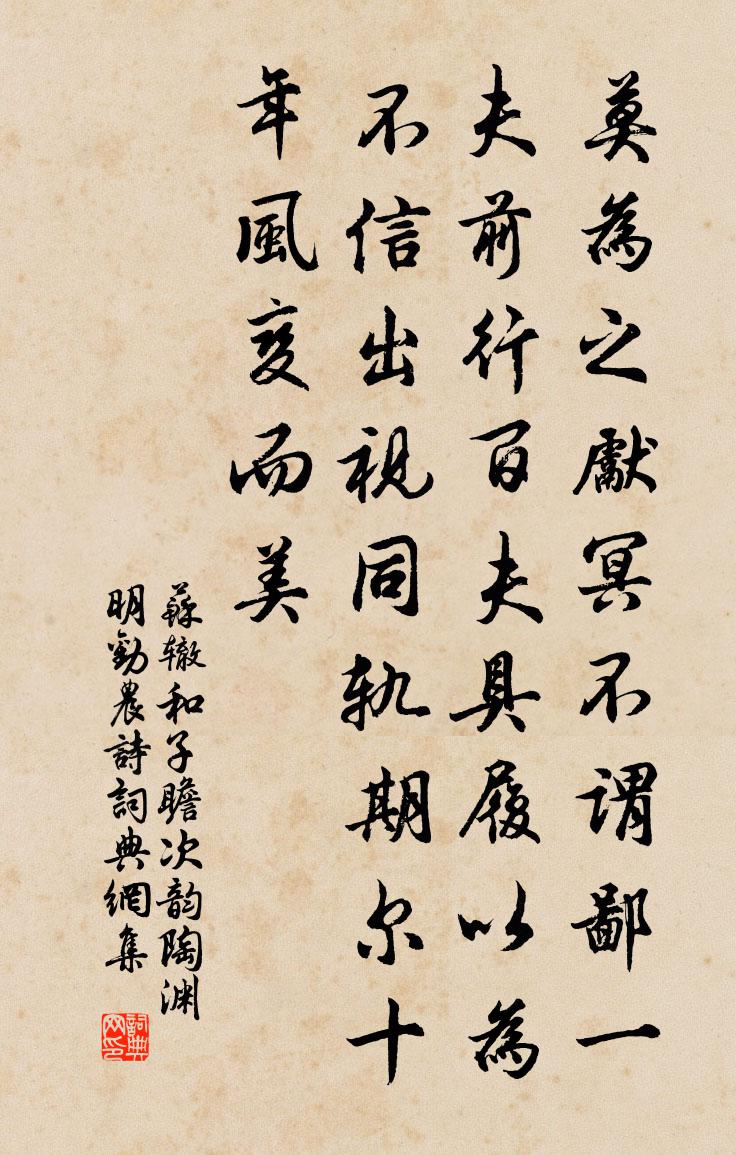 莫為之獻冥不谓鄙一
夫前行百夫具履以為
不信出視同轨期尔十
年風变而美
蘇辙和子瞻次韵陶渊
明勸農詩詞典網集
詞典
网印